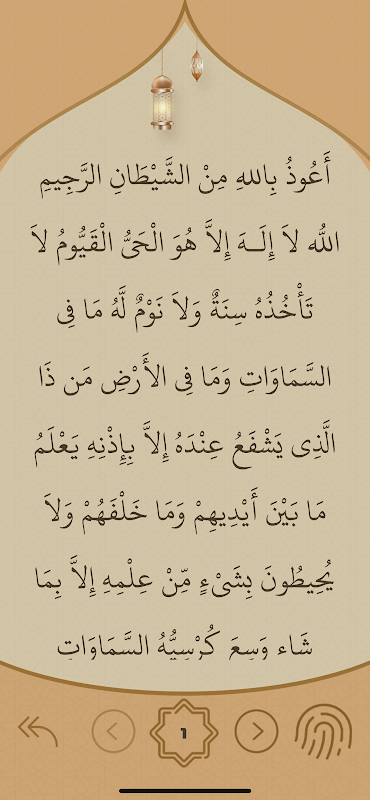 أَعُوذُ بِاللهِ مِنْ الشَّيْطَانِ الرَّجِيمِ
اللّه لاَ إِلَـهَ إِلاَّ هُوَ الْحَيُّ الْقَيُّومُ لاَ
تَأْخُذُهُ سِنَةٌ وَلاَ نَوْمٌ لَّهُ مَا فِي
السَّمَاوَاتِ وَمَا فِي الأَرْضِ مَن ذَا
الَّذِي يَشْفَعُ عِنْدَهُ إِلاَّ بِإِذْنِهِ يَعْلَمُ
مَا بَيْنَ أَيْدِيهِمْ وَمَا خَلْفَهُمْ وَلاَ
يُحِيطُونَ بِشَيْءٍ مِّنْ عِلْمِهِ إِلاَّ بِمَا
شَاء وَسِعَ كُرْسِيُّهُ السَّمَاوَاتِ
١